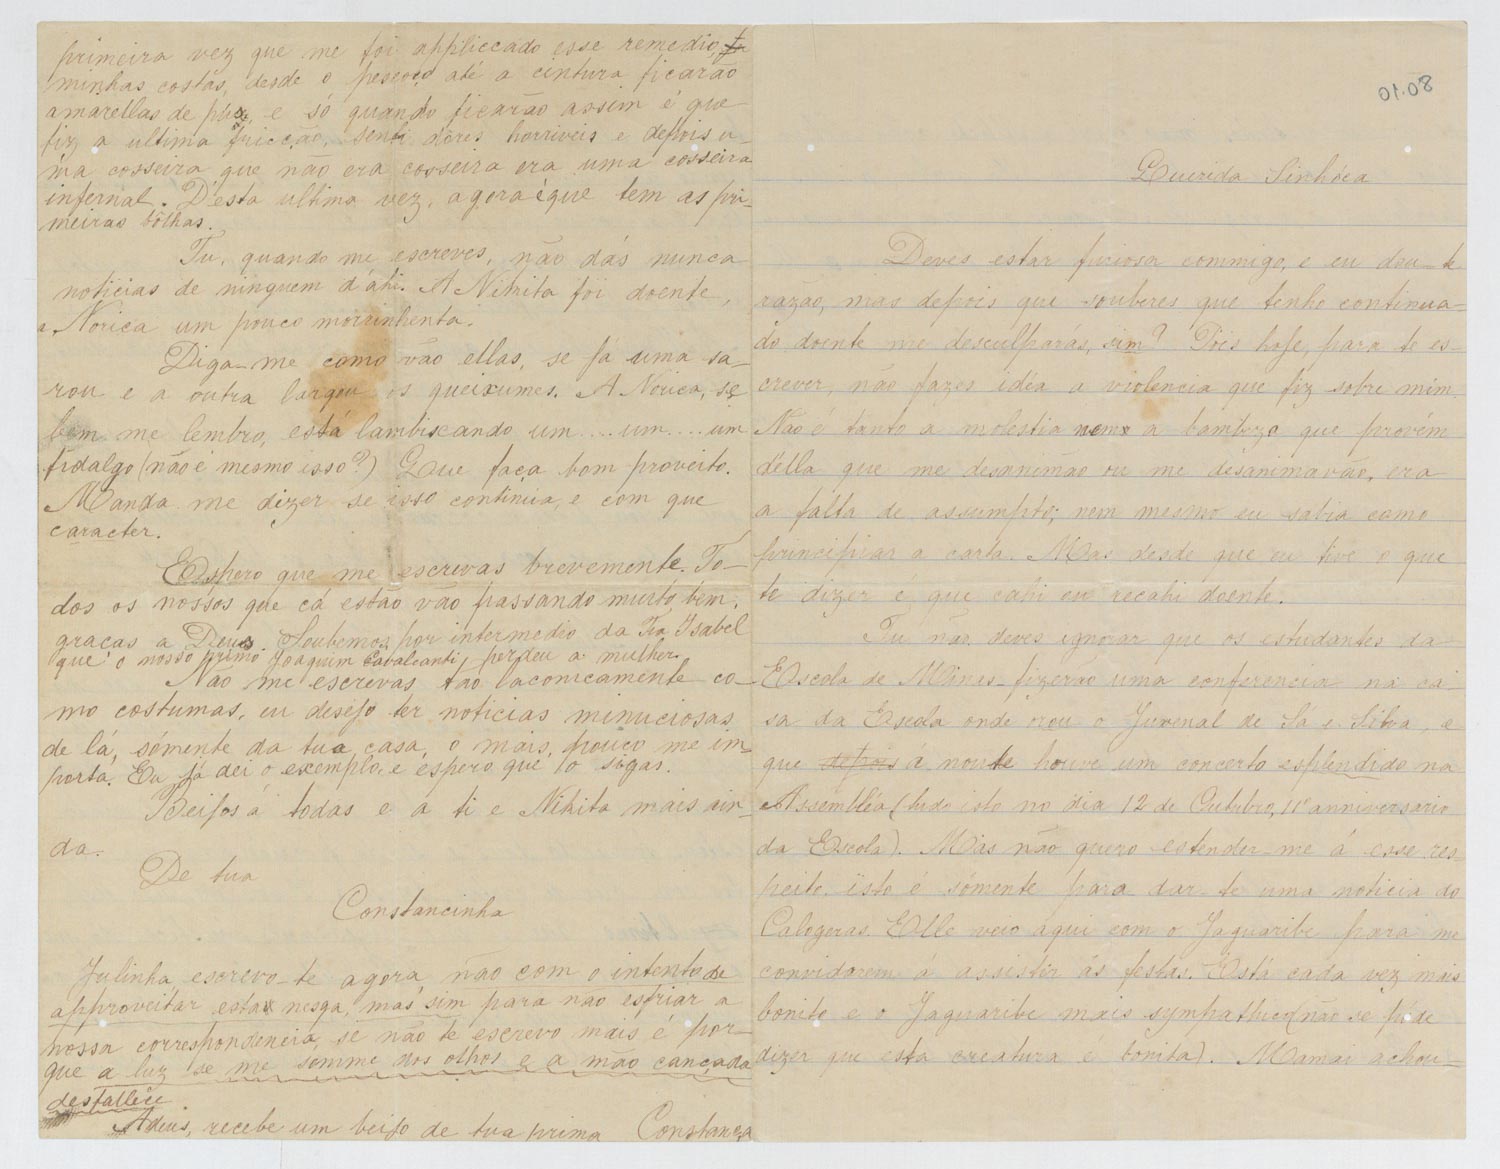 primeira vez que me foi appliccado esse remedio,
minhas costas, desde o pescoço até a cintura ficarão
amarellas de pús, e só quando ficarão assim é que
fiz a ultima fricção, senti dôres horriveis e depois u-
ma cosseira que não era cosseira era uma cosseira
infernal. D'esta ultima vez, agora é que tem as pri-
meiras bôlhas.
Tu, quando me escreves, não dás nunca
noticias de ninguem d'ahi. A Nihita foi doente,
a Norica um pouco morrinhenta.
Diga-me como vão ellas, se já uma sa-
rou e a outra largou os queixumes. A Norica, se
bem me lembro, está lambiscando um....um....um
fidalgo (não é mesmo isso?) Que faça bom proveito.
Manda me dizer se isso continua, e com que
caracter.
Espero que me escrevas brevemente. To-
dos os nossos que cá estão vão passando muito bem,
graças a Deus. Soubemos por intermedio da Tia Isabel
que o nosso primo Joaquim Cavalcanti, perdeu a mulher.
Não me escrevas tão laconicamente co-
mo costumas, eu desejo ter noticias minuciosas
de lá, sómente da tua casa, o mais, pouco me im-
porta. Eu já dei o exemplo, e espero que o sigas.
Beijos á todas e a ti e Nihita mais ain-
da.
De tua
Constancinha
Julinha, escrevo-te agora, não com o intento de
approveitar esta nesga, mas sim para não esfriar a
nossa correspondencia, se não te escrevo mais é por-
que a luz se me somme dos olhos e a mão cançada
desfallece
Adeus, recebe um beijo de tua prima Constança
01.08
Querida Sinhóca
Deves estar furiosa commigo, e eu dou-te
razão, mas depois que souberes que tenho continua-
do doente me desculparás, sim? Pois hoje, para te es-
crever, não fazes idéa a violencia que fiz sobre mim.
Não é tanto a molestia nem a bambeza que provém
d'ella que me desanimão ou me desanimavão, era
a falta de assumpto; nem mesmo eu sabia como
principiar a carta. Mas desde que eu tive o que
te dizer e que cahi eu recahi doente.
Tu não deves ignorar que os estudantes da
Escola de Minas fizerão uma conferencia na ca-
sa da Escola onde orou o Juvenal de Sá e Silva, e
que depois á noute houve um concerto esplendido na
Assembléa (tudo isto no dia 12 de Outubro, 11º anniversario
da Escola). Mas não quero estender-me á esse res-
peito, isto é sómente para dar-te uma noticia do
Calogeras. Elle veio aqui com o Jaguaribe para me
convidarem á assistir ás festas. Está cada vez mais
bonito e o Jaguaribe mais sympathico (não se póde
dizer que esta creatura é bonita). Mamai achou-